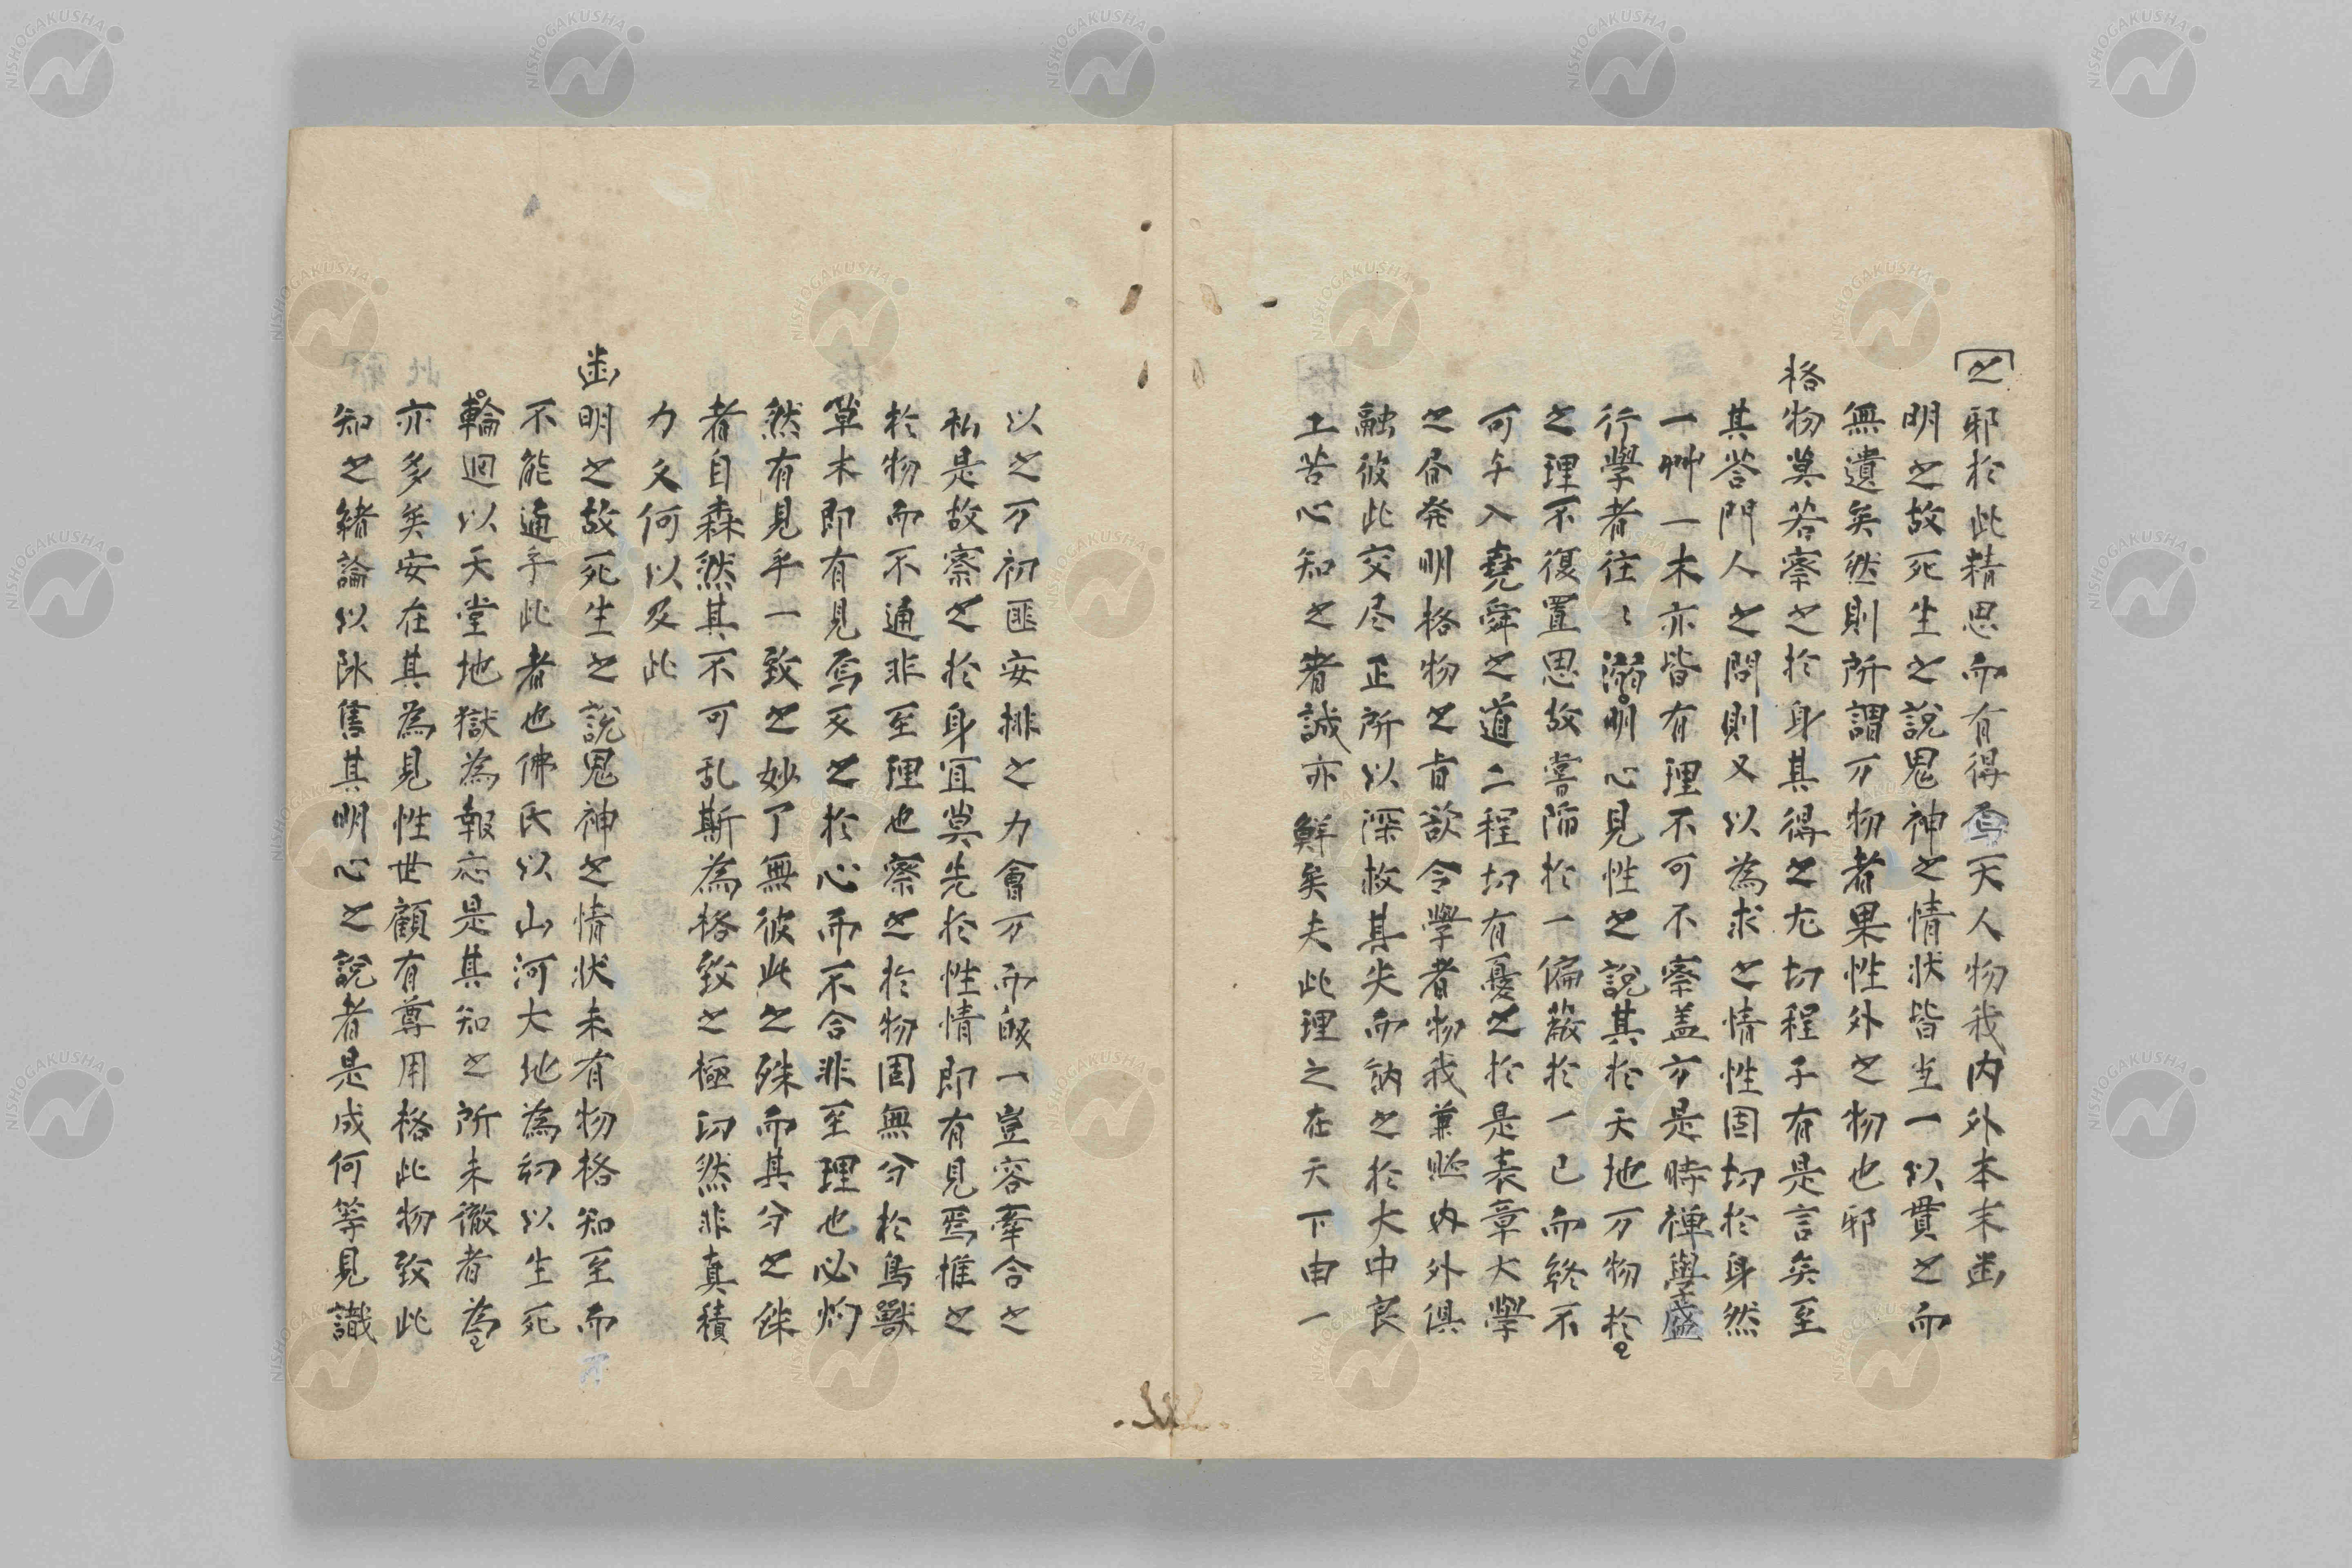 之邪於此精思而有得焉天人物我内外本末幽
明之故死生之說鬼神之情状皆当一以貫之而
無遺矣然則所謂万物者果性外之物也邪
格物莫若察之於身其得之尤切程子有是言矣至
其荅門人之問則又以為求之情性固切於身然
一艸一木亦皆有理不可不察盖方是時禅學盛
行學者往〻溺明心見性之說其於天地万物於
之理不復置思故嘗陥於一偏蔽於一已而終不
可与入堯舜之道二程切有憂之於是表章大學
之㫖発明格物之㫖欲令學者物我兼照内外俱
融彼此交尽正所以深救其失而納之於大中良
工苦心知之者誠亦鮮矣夫此理之在天下由一
以之万初匪安排之力會万而皈一豈容牽合之
私是故察之於身宜莫先於性情即有見焉推之
於物而不通非至理也察之於物固無分於鳥獸
草木即有見焉反之於心而不合非至理也必灼
然有見乎一致之妙了無彼此之殊而其分之殊
者自森然其不可乱斯為格致之極切然非真積
力久何以及此
幽明之故死生之說鬼神之情状未有物格知至而
不能通乎此者也佛氏以山河大地為初以生死
輪迴以天堂地獄為報応是其知之所未徹者為
亦多矣安在其為見性世顧有尊用格此物致此
知之緒論以陰售其明心之說者是成何等見識